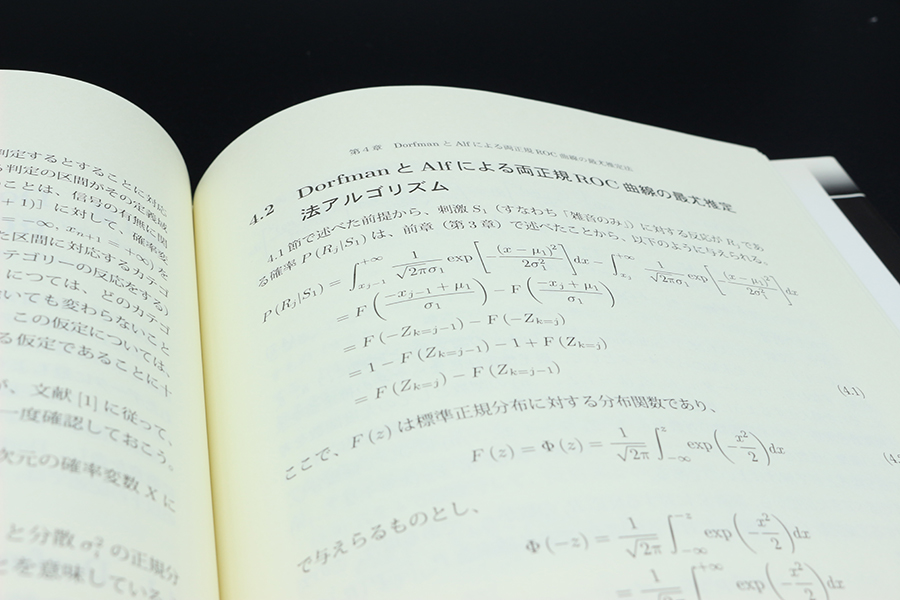 判定するとすることに対応
る判定の区間がその定義域
ことは、信号の有無に関
+ 1)] に対して、確率変
= −∞, xₙ₊₁ = +∞) を
た区間に対応するカテゴ
テゴリーの反応をする)
につては、どのカテゴ
おいても変わらないこと
この仮定については、
る仮定であることに十
が、文献 [1] に従って、
一度確認しておこう。
次元の確率変数 X に
と分散 σ₁² の正規分
とを意味している
第4章 Dorfman と Alf による両正規 ROC 曲線の最尤推定法
4.2 Dorfman と Alf による両正規 ROC 曲線の最尤推定
法アルゴリズム
4.1 節で述べた前提から、刺激 S₁（すなわち「雑音のみ」）に対する反応が Rⱼ であ
る確率 P(Rⱼ|S₁) は、前章（第3章）で述べたことから、以下のように与えられる。
P(Rⱼ|S₁) = ∫_{xⱼ₋₁}^{+∞} 1/(√(2π)σ₁) exp[−(x − μ₁)²/(2σ₁²)] dx − ∫_{xⱼ}^{+∞} 1/(√(2π)σ₁) exp[−(x − μ₁)²/(2σ₁²)] dx
= F((−xⱼ₋₁ + μ₁)/σ₁) − F((−xⱼ + μ₁)/σ₁)
= F(−Z_{k=j−1}) − F(−Z_{k=j})
= 1 − F(Z_{k=j−1}) − 1 + F(Z_{k=j})
= F(Z_{k=j}) − F(Z_{k=j−1})
(4.1)
ここで、F(z) は標準正規分布に対する分布関数であり、
F(z) = Φ(z) = 1/√(2π) ∫_{−∞}^{z} exp(−x²/2) dx
(4.
で与えらるものとし、
Φ(−z) = 1/√(2π) ∫_{−∞}^{−z} exp(−x²/2) dx
= 1/√(2π) ∫^{+∞} exp(−x²/2) dx